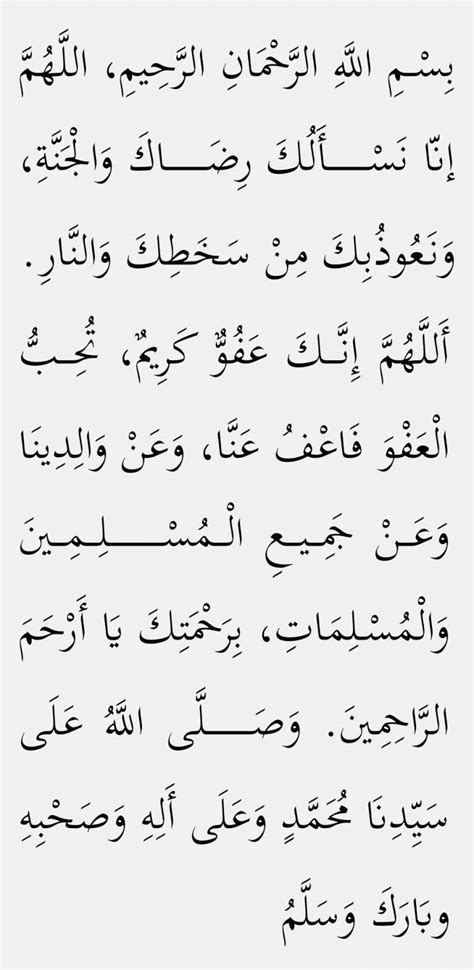 بِسْمِ اللَّهِ الرَّحْمَانِ الرَّحِيمِ، اللَّهُمَّ
إنّا نَسْأَلُكَ رِضَاكَ وَالْجَنَّةِ،
وَنَعُوذُبِكَ مِنْ سَخَطِكَ وَالنَّارِ.
أَللَّهُمَّ إِنَّكَ عَفُوٌّ كَرِيمٌ، تُحِبُّ
الْعَفْوَ فَاعْفُ عَنَّا، وَعَنْ وَالِدِينَا
وَعَنْ جَمِيعِ الْمُسْلِمِينَ
وَالْمُسْلِمَاتِ، بِرَحْمَتِكَ يَا أَرْحَمَ
الرَّاحِمِينَ. وَصَلَّى اللَّهُ عَلَى
سَيِّدِنَا مُحَمَّدٍ وَعَلَى أَلِهِ وَصَحْبِهِ
وبَارَكَ وَسَلَّمُ